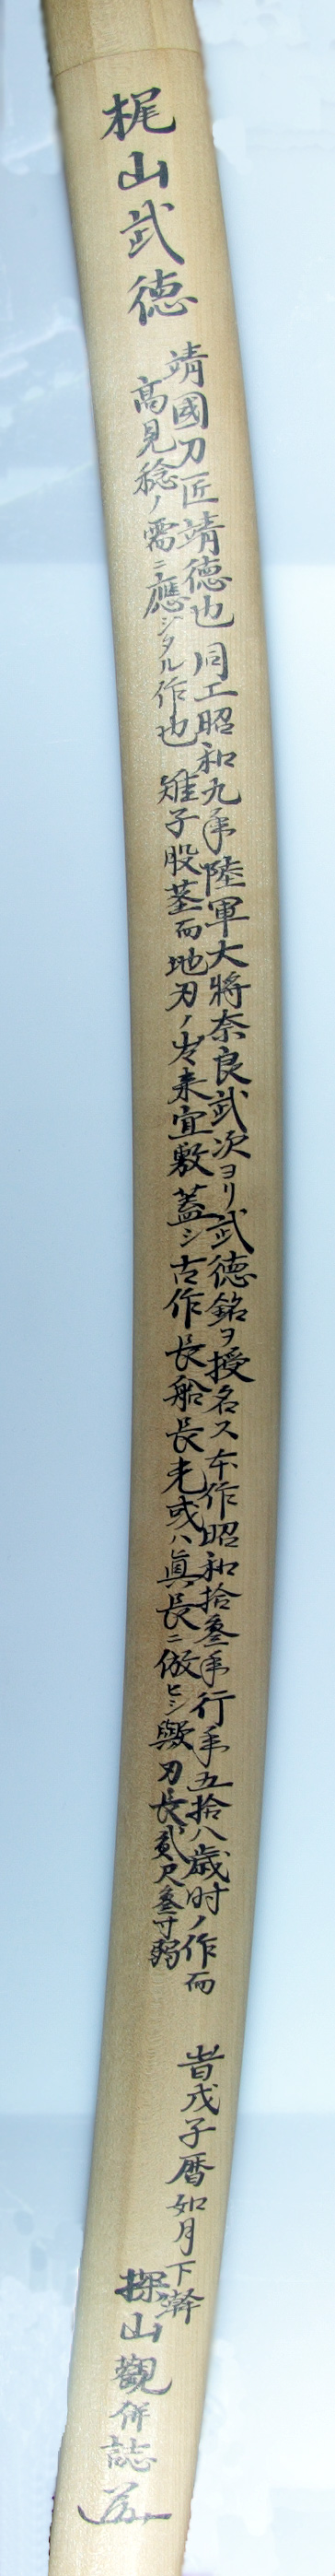 梶山武徳
靖國刀匠靖徳也 同工昭和九年陸軍大將奈良武次ヨリ武徳銘ヲ授名ス 本作昭和拾叄年行年五拾八歳时ノ作而
高見稔ノ需ニ應ジタル作也 雉子股茎而地刃ノ出来宜敷 蓋シ古作長船長光或ハ真長ニ倣ヒシ歟 刃長貳尺叄寸弱
旹戊子暦如月下澣
探山觀併誌